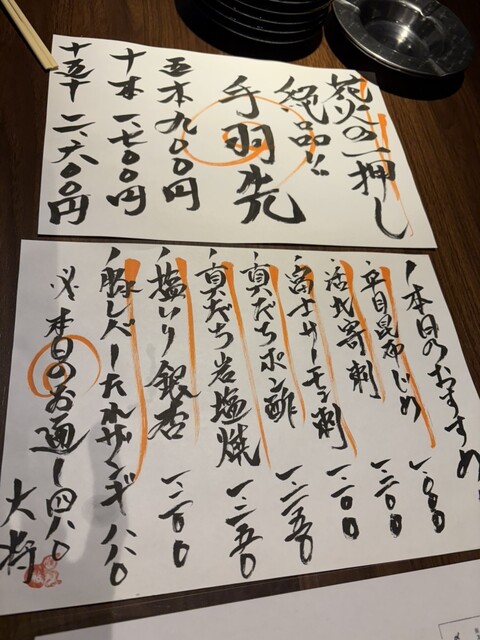 花火の一押し
絶品!!
手羽先
五本 九〇〇円
十本 一、七〇〇円
十五本 二、六〇〇円
本日のおすすめ
平目昆布じめ 一、〇〇〇
活北寄刺 一、二〇〇
富士サーモン刺 一、一〇〇
真だちポン酢 一、二五〇
真だち岩塩焼 一、二五〇
塩いり銀杏 一、二〇〇
豚レバーたれザンギ 八八〇
本日のお通し 四八〇
大将